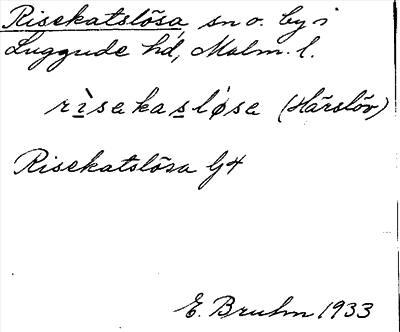 Risekatslösa, sn o. by i
Luggude hd, Malm. l.
rìsekasløsa (Härslöv)
Risekatslösa G4
E. Bruhm 1933